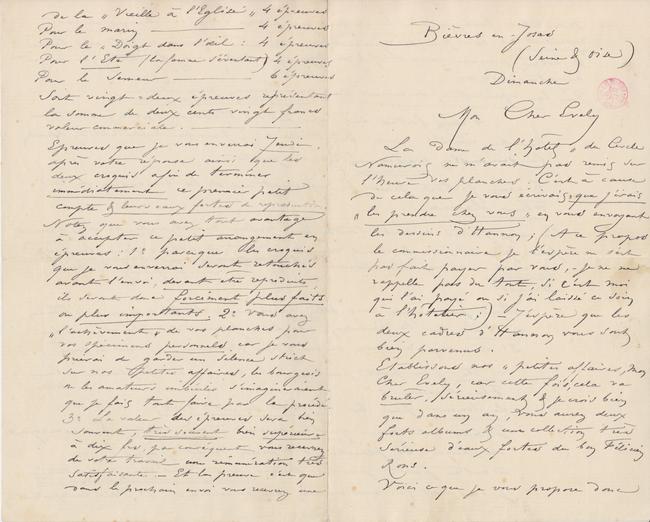 Bièvres en-Josas
(Seine & Oise)
Dimanche
Mon Cher Evely
La Dame de l'hôtel, du Cercle
Namurois ne m'avait pas remis sur
l'heure vos planches. C'est à cause
de cela que je vous écrivais, que j'irais
"les prendre chez vous" en vous envoyant
les dessins d'Hannon; (A ce propos
le commissionnaire je l'espère ne s'est
pas fait payer par vous, je ne me
rappelle pas du tout, si c'est moi
qui l'ai payé ou si j'ai laissé ce soin
à l'hôtelier;) – j'espère que les
deux cadres d'Hannon vous sont
bien parvenus.
Etablissons nos "petites affaires", mon
Cher Evely, car cette fois, cela va
rouler, sérieusement & je crois bien
que dans un an, vous aurez deux
forts albums & une collection très
sérieuse d'eaux fortes du bon Félicien
Rops.
Voici ce que je vous propose donc
de la "Vieille à l'Eglise" 4 épreuves
Pour le marin — 4 épreuves
Pour le "Doigt dans l'œil" : 4 épreuves
Pour l'Eté (la femme s'éventant) 4 épreuves
Pour le Semeur — 6 épreuves
Soit vingt-deux épreuves représentant
la somme de deux cents vingt francs
valeur commerciale.
Epreuves que je vous enverrai Jeudi
après votre réponse ainsi que les
deux croquis afin de terminer
immédiatement ce premier petit
compte & leurs eaux fortes de reproduction.
Notez que vous avez tout avantage
à accepter ce petit arrangement en
épreuves : 1° parce que les croquis
que je vous enverrai seront retouchés
avant l'envoi, devant être reproduits,
ils seront donc forcément plus faits
ou plus importants. 2° vous avez
"l'achèvement" de vos planches pour
vos spécimens personnels car je vous
prierai de garder un silence strict
sur nos petites affaires, les bourgeois
ou les amateurs imbéciles s'imagineraient
que je fais tout faire par le procédé
3° La valeur des épreuves sera bien
souvent très souvent bien supérieure
à dix frs, par conséquent vous recevrez
de votre travail une rémunération très
satisfaisante – Et la preuve c'est que
dans le prochain envoi vous recevrez une